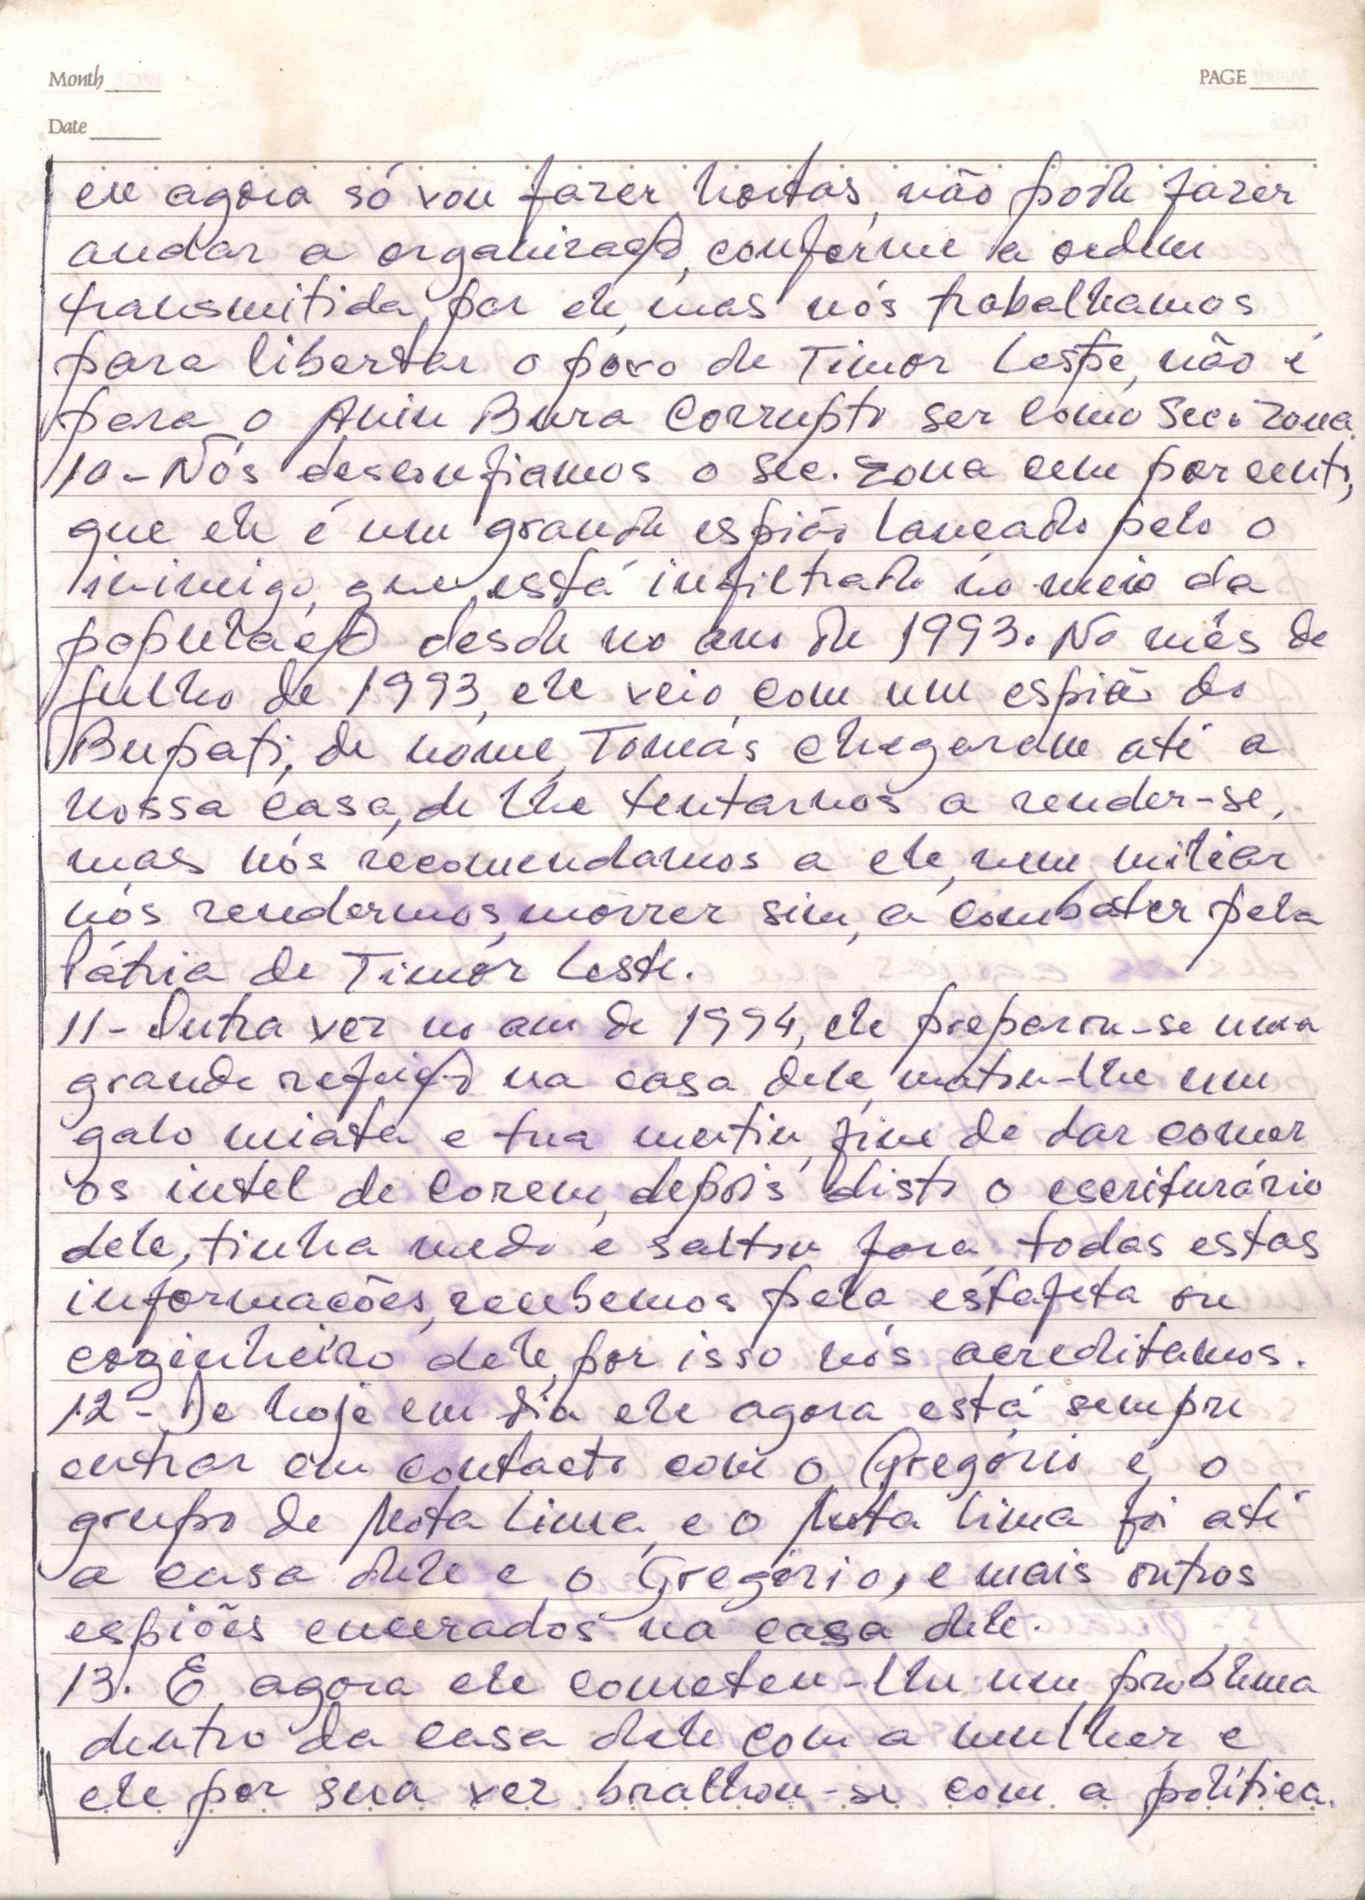 Month
PAGE
Date
eu agora só vou fazer hortas, não pode fazer
andar a organização, conforme a ordem
transmitida por ele, mas nós trabalhamos
para libertar o povo de Timor Leste, não é
para o Anin Bura Corrupto ser como Sec. Zona.
10 - Nós desconfiamos o Sec. Zona cem por cento,
que ele é um grande espião lancado pelo o
inimigo, que está infiltrado no meio da
população desde no ano de 1993. No mês de
Julho de 1993, ele veio com um espião do
Bupati, de nome, Tomás chegaram até a
nossa casa, de lhe tentarmos a render-se,
mas nós recomendamos a ele, nem miliar
nós rendermos, morrer sim, a combater pela
Pátria de Timor Leste.
11 - Outra vez no ano de 1994, ele preparou-se uma
grande refeição na casa dele, matou-lhe um
galo miata e tua mutin, fim de dar comer
os intel de Corem, depois disto o escriturário
dele, tinha medo e saltou fora, todas estas
informacões, recebemos pela estafeta ou
cozinheiro dele, por isso nós acreditamos.
12 - De hoje em dia ele agora está sempre
entrar em contacto com o Gregório e o
grupo de Mota Lima, e o Mota Lima foi até
a casa dele e o Gregório, e mais outros
espiões encerrados na casa dele.
13. E agora ele cometeu-lhe um problema
dentro da casa dele com a mulher e
ele por sua vez bralhou-se com a política.